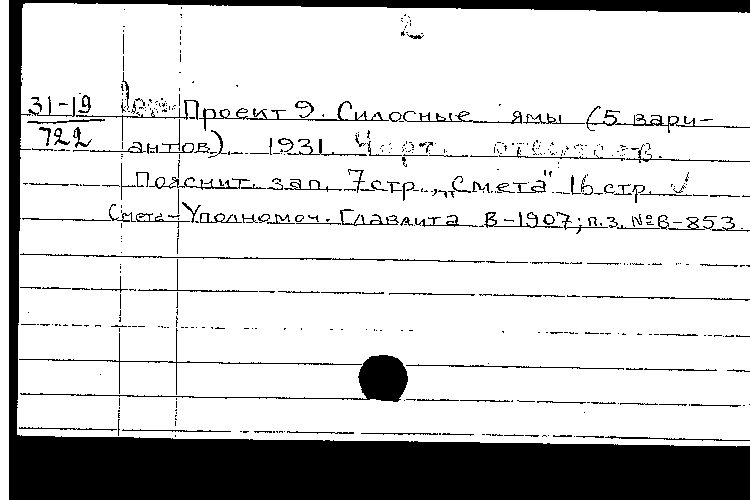 2
31-19
722
Проект 9. Силосные ямы (5 вари-
антов). 1931. Черт. отсутств.
Пояснит. зап. 7 стр., „Смета" 16 стр. ✓
Смета - Уполномоч. Главлита В-1907; п.з. №В-853.